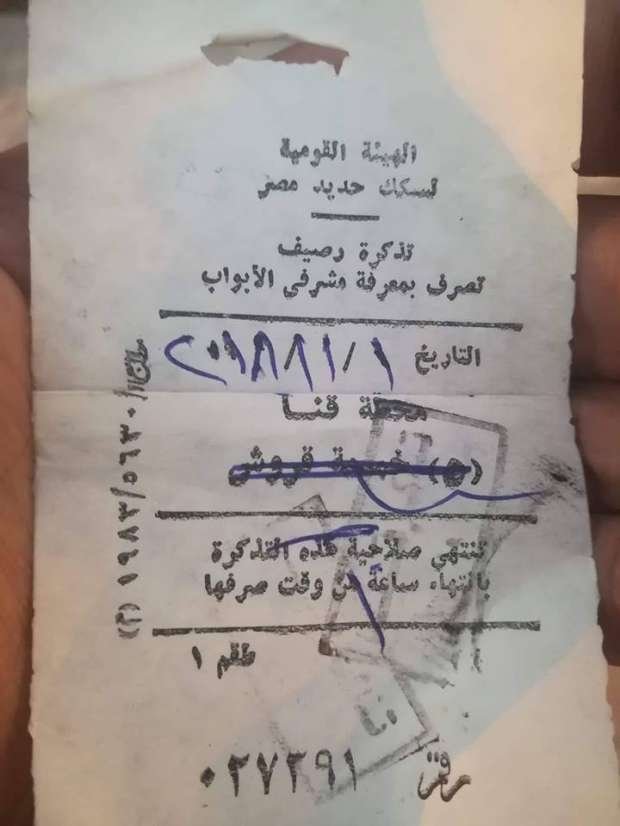 الهيئة القومية
لسكك حديد مصر
تذكرة رصيف
تصرف بمعرفة مشرفى الأبواب
التاريخ ١/١١/٢٠١٨
محطة قنا
(ج) خمسة قروش
تنتهى صلاحية هذه التذكرة
بانتهاء ساعة من وقت صرفها
١
طقم ١
قنا
رقم ٠٢٧٣٩١
١٩٨٣/٥٦٣٠/١١ (٢)